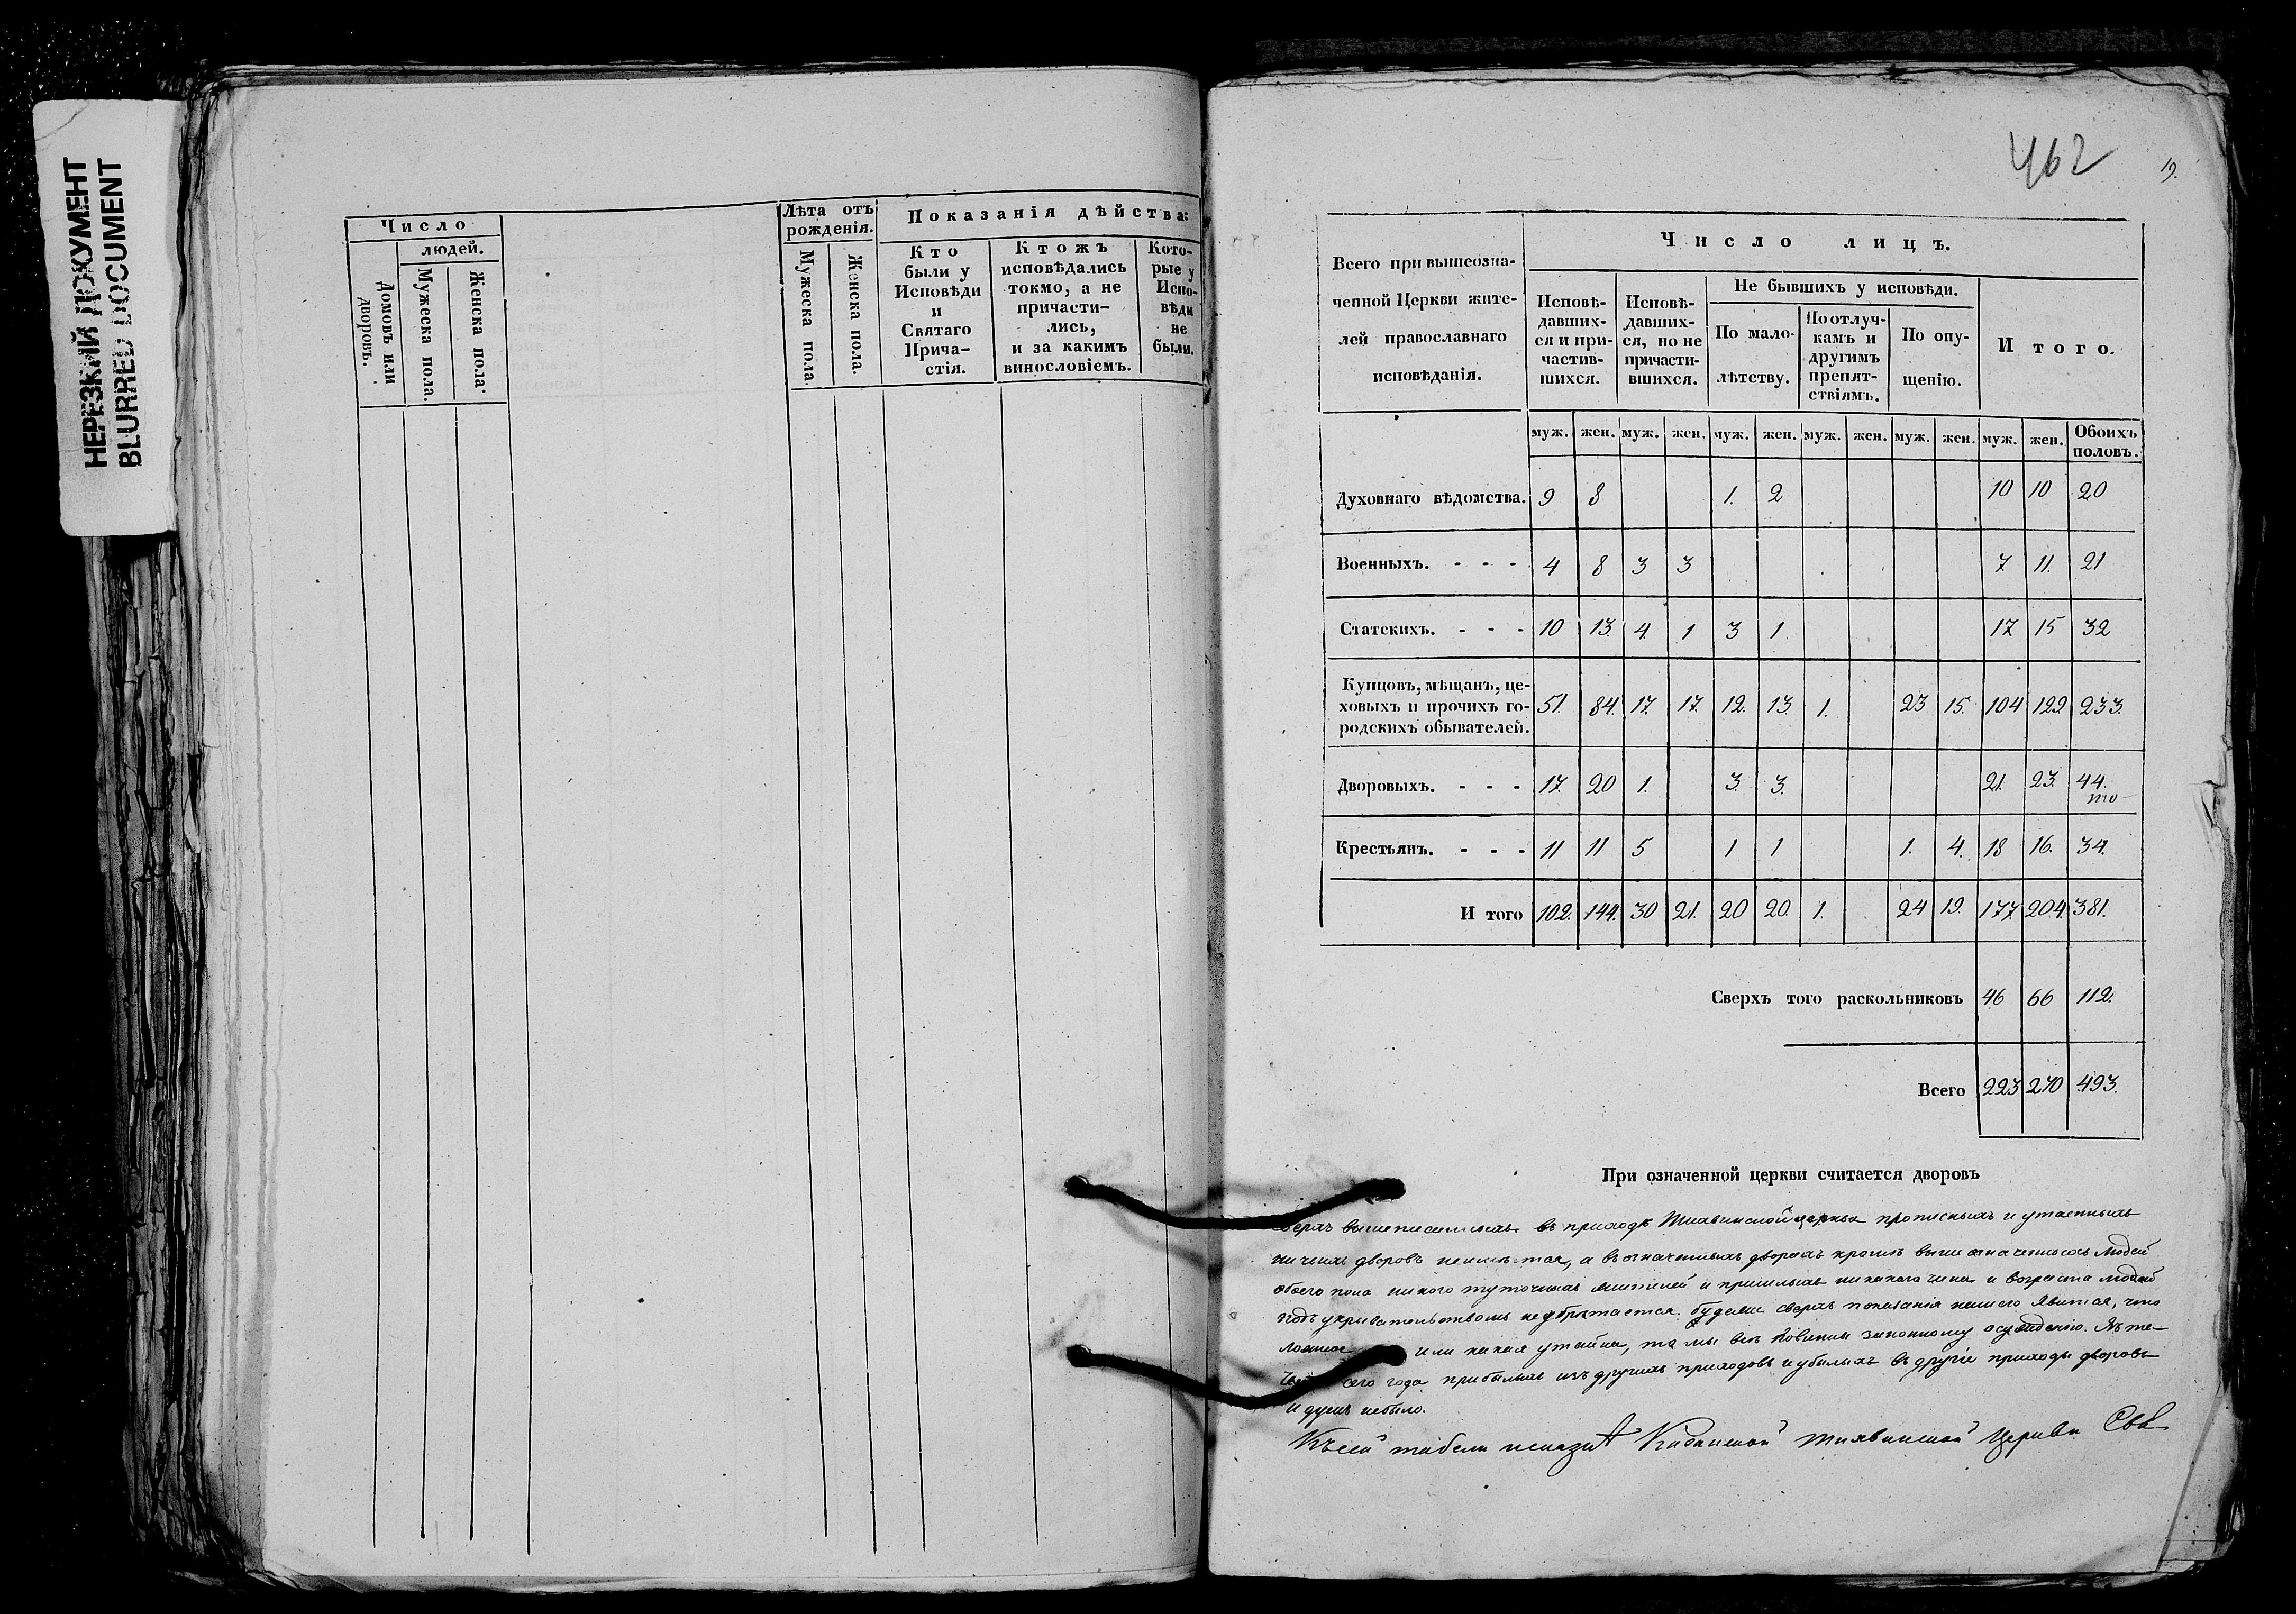 НЕРЕЗКИЙ ДОКУМЕНТ
BLURRED DOCUMENT
Число
людей.
Домовъ или дворовъ.
Мужеска пола.
Женска пола.
Лѣта отъ рожденія.
Мужеска пола.
Женска пола.
Показанія дѣйства:
Кто
были у
Исповѣди
и
Святаго
Прича-
стія.
Ктожъ
исповѣдались
токмо, а не
причасти-
лись,
и за какимъ
винословіемъ.
Кото-
рые у
Испо-
вѣди
не
были.
462
19.
Всего при вышеозна-
ченной Церкви жите-
лей православнаго
исповѣданія.
Число лицъ.
Исповѣ-
давших-
ся и при-
частив-
шихся.
Исповѣ-
давших-
ся, но не
причасти-
вшихся.
Не бывшихъ у исповѣди.
По мало-
лѣтству.
По отлуч-
камъ и
другимъ
препят-
ствіямъ.
По опу-
щенію.
Итого.
муж. жен. муж. жен. муж. жен. муж. жен. муж. жен. муж. жен. Обоихъ половъ.
Духовнаго вѣдомства. 9 8 1. 2 10 10 20
Военныхъ. - - - 4 8 3 3 7 11. 21
Статскихъ. - - - 10 13. 4. 1 3 1. 17 15 32
Купцовъ, мѣщанъ, це-
ховыхъ и прочихъ го-
родскихъ обывателей. 51. 84. 17. 17. 12. 13. 1. 23 15. 104 122 233.
Дворовыхъ. - - - 17. 20 1. 3. 3. 21. 23. 44.
то
Крестьянъ. - - - 11 11 5 1 1 1. 4. 18 16. 34.
И того 102. 144. 30 21. 20 20. 1. 24 19. 177 204. 381.
Сверхъ того раскольниковъ 46 66 112.
Всего 223 270 493.
При означенной церкви считается дворовъ
въ приходѣ Тихвинской церкви прописныхъ и утаенныхъ
ничьихъ дворовъ неимѣется, а въ означенныхъ дворахъ кромѣ вышеозначенныхъ людей
обоего пола никого тутошныхъ жителей и пришлыхъ никакого чина и возраста людей
подъ укрывательствомъ необрѣтается. будеже сверхъ показанія нашего явится, что
или какая утайка, то мы всѣ повинны законному осужденію. Въ те-
сего года прибылыхъ изъ другихъ приходовъ и убылыхъ въ другіе приходы дворовъ
и душъ небыло.
Къ сей табели Тихвинской Церкви